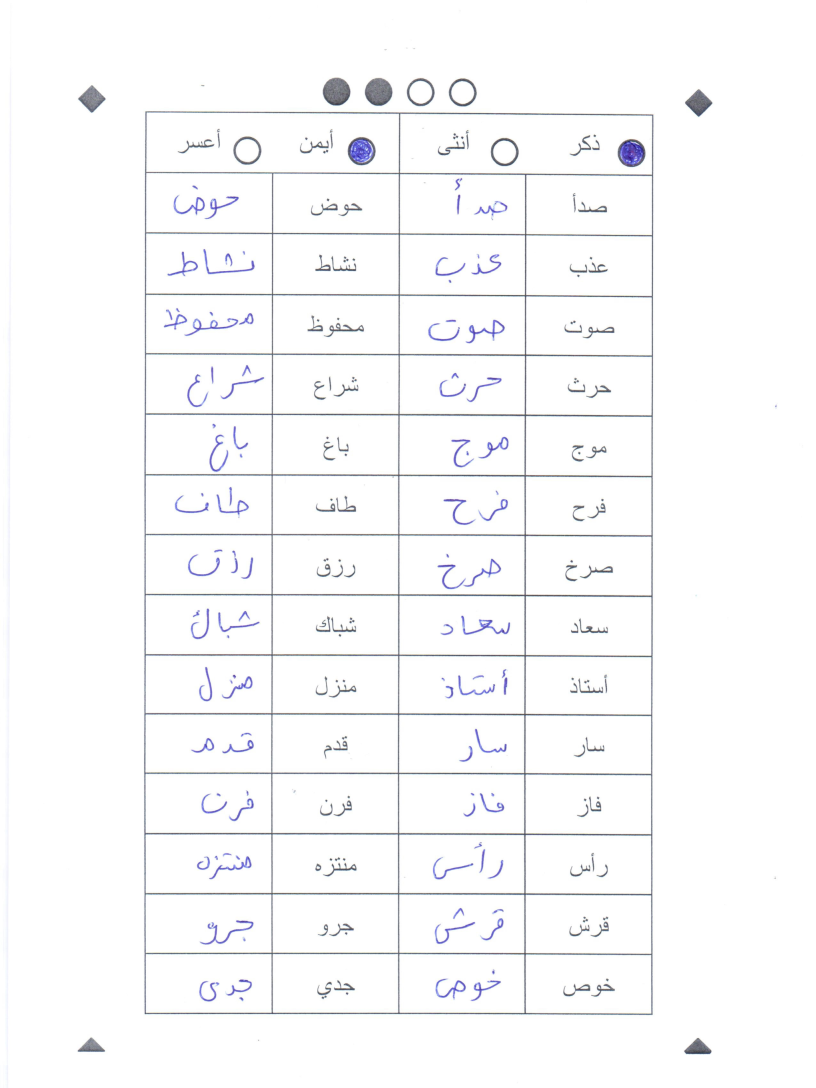 ذكر أنثى أيمن أعسر
صدأ صدأ حوض حوض
عذب عذب نشاط نشاط
صوت صوت محفوظ محفوظ
حرث حرث شراع شراع
موج موج باغ باغ
فرح فرح طاف طاف
صرخ صرخ رزق رزق
سعاد سعاد شباك شباك
أستاذ أستاذ منزل منزل
سار سار قدم قدم
فاز فاز فرن فرن
رأس رأس منتزه منتزه
قرش قرش جرو جرو
خوص خوص جدي جدى